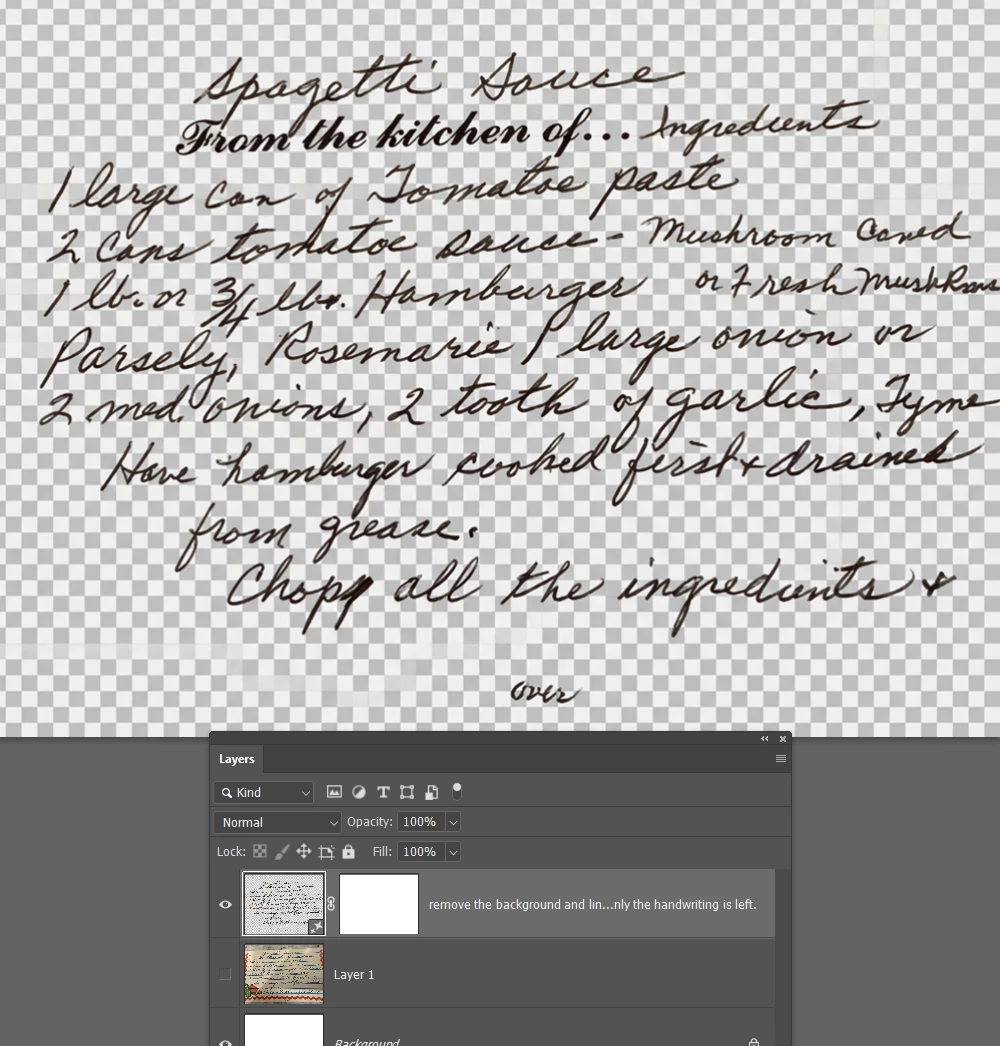 Spagetti Sauce
From the kitchen of... Ingredients
1 large can of Tomatoe paste
2 cans tomatoe sauce - Mushroom Caned
1 lb. or 3/4 lbs. Hamburger or Fresh
Parsely, Rosemarie 1 large onion or
2 med. onions, 2 tooth of garlic, Tyme
Have hamburger cooked first & drained
from grease.
Chopp all the ingredients &
over
Layers
Kind
Normal Opacity: 100%
Lock: Fill: 100%
remove the background and lin...nly the handwriting is left.
Layer 1
Background